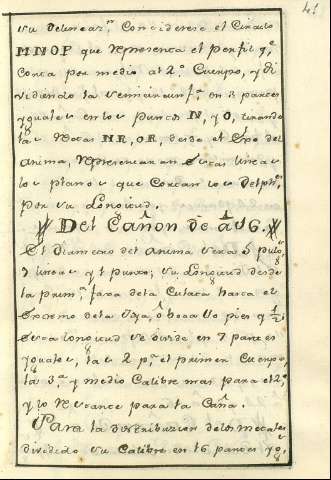 41
su delineaz.ⁿ Considerese el Circulo
MNOP que representa el perfil q.ᵉ
corta por medio al 2.º Cuerpo, y di
vidiendo la semicircunf.ª en 3 partes
yguales en los puntos N, y O, tirando
las rectas NR, OR, desde el Exo del
Anima, representaran estas lineas
los planos que cortan los Delph.ˢ
por su Longitud.
Del Cañon de á 16.
El diametro del Anima sera 5 pulg.ˢ
3 lineas y 1 punto; su Longitud desde
la prim.ª faxa de la Culata hasta el
Extremo de la Joya, ô boca 8 pies y ½;
Esta longitud se divide en 7 partes
yguales, las 2 p.ª el primer Cuerpo,
la 3.ª y medio Calibre mas para el 2.º,
y lo restante para la Caña.
Para la distribuzion de los metales
dividido su Calibre en 16 partes yg.ˢ